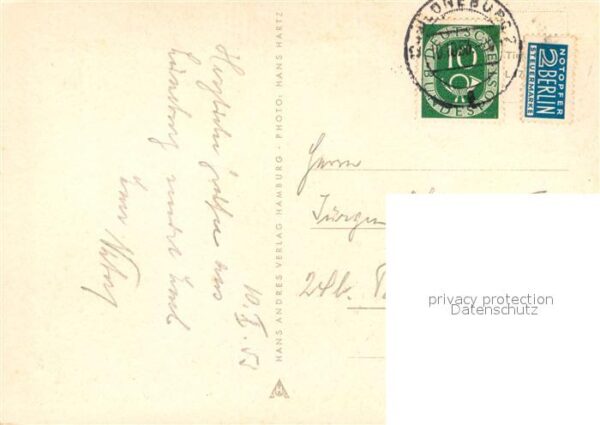 Herzliche Grüße aus
Lüneburg sendet Euch
10. X. 53
HANS ANDRES VERLAG HAMBURG · PHOTO: HANS HARTZ
LÜNEBURG 2
DEUTSCHE
BUNDESPOST
10
NOTOPFER
2 BERLIN
STEUERMARKE
Herrn
Jürgen
24b.
privacy protection
Datenschutz